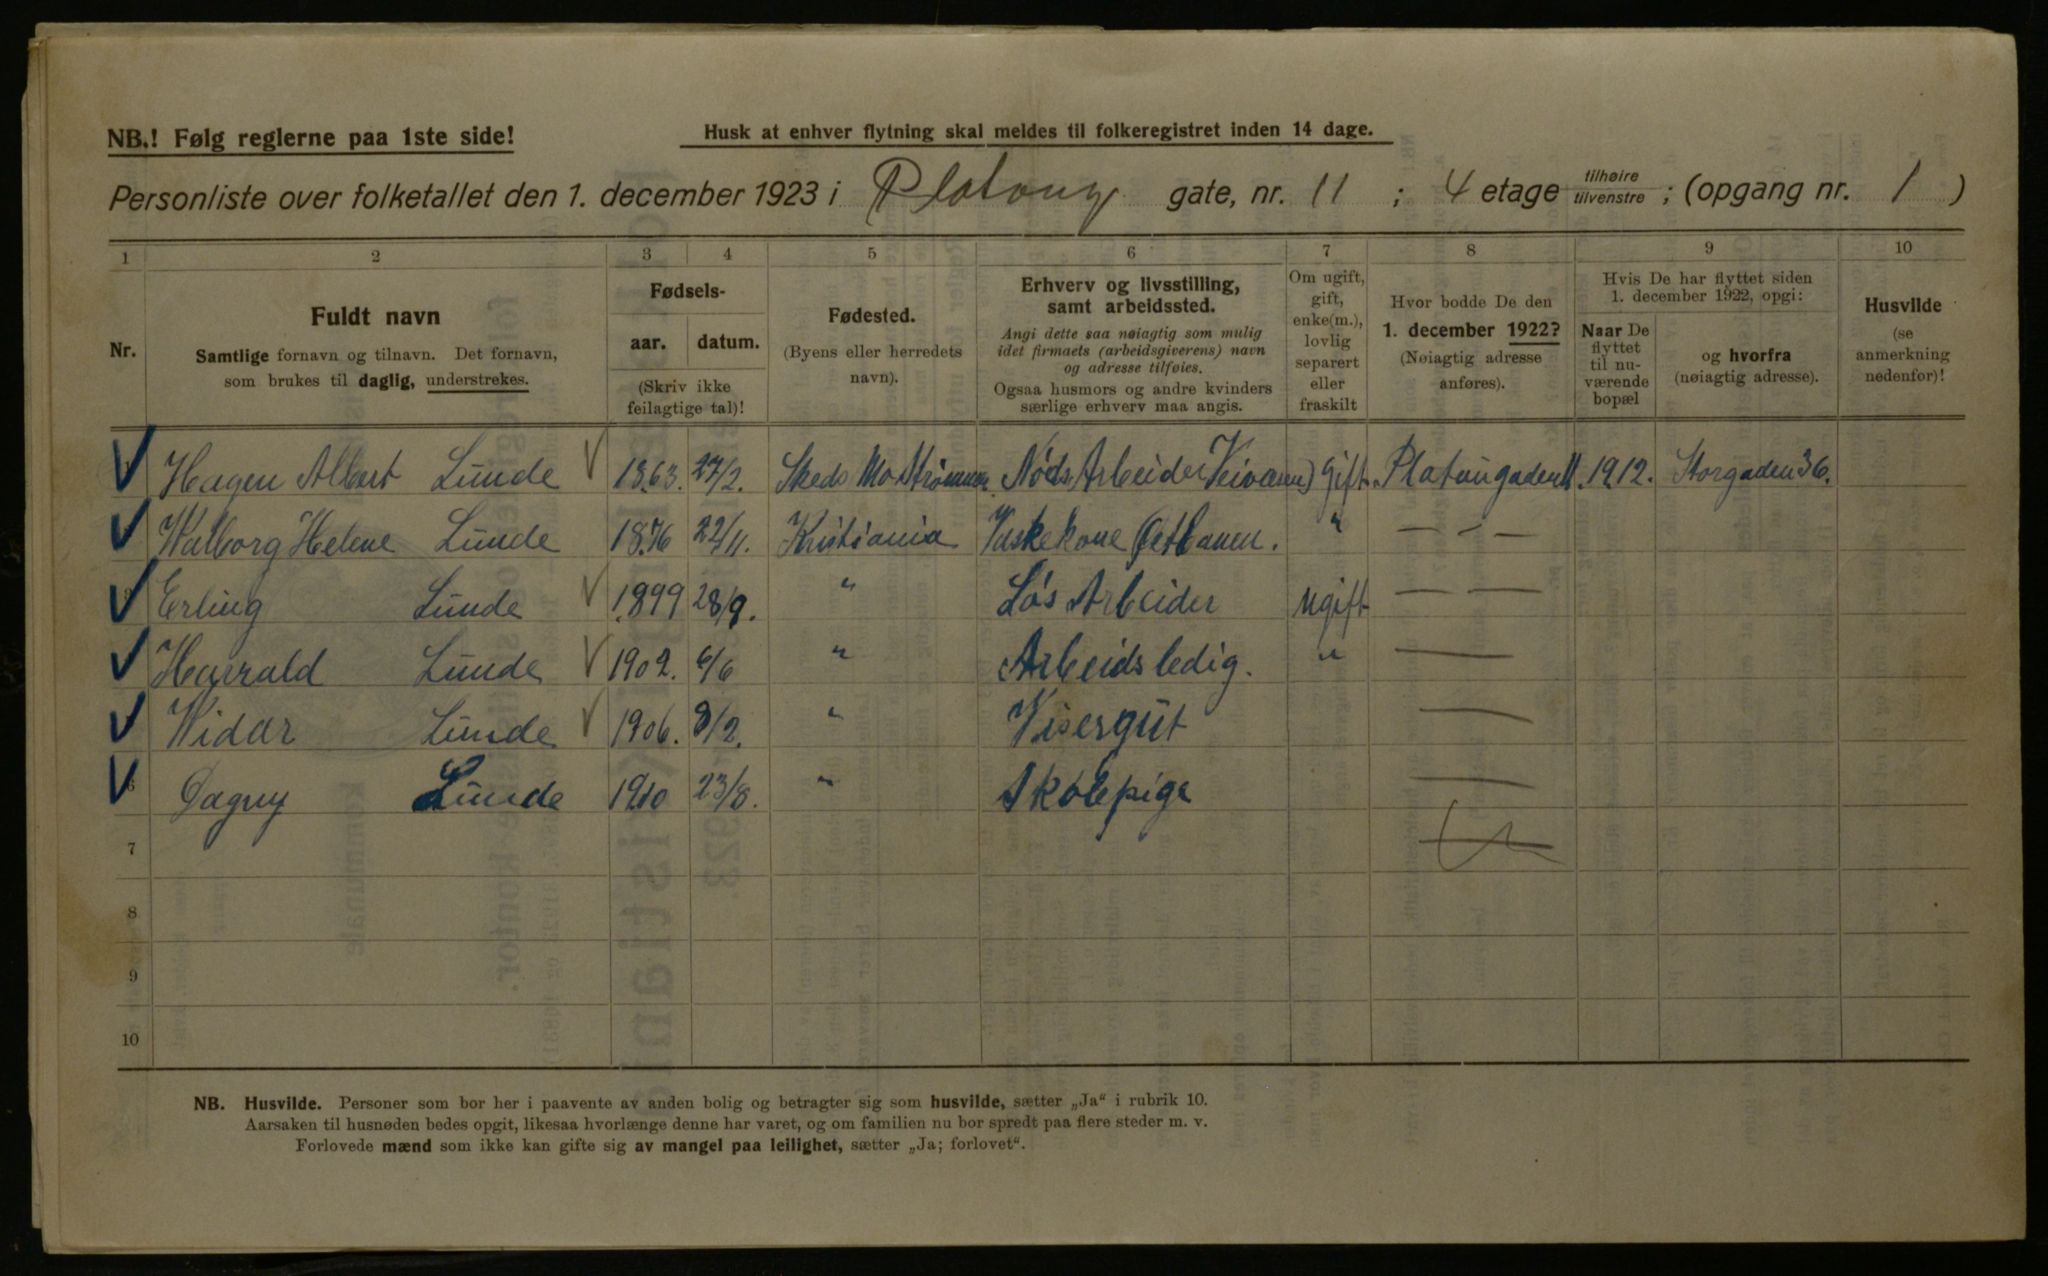 NB.! Følg reglerne paa 1ste side!
Husk at enhver flytning skal meldes til folkeregistret inden 14 dage.
Personliste over folketallet den 1. december 1923 i Platoug gate, nr. 11 ; 4 etage tilhøire tilvenstre ; (opgang nr. 1 )
1 2 3 4 5 6 7 8 9 10
Nr.
Fuldt navn
Samtlige fornavn og tilnavn. Det fornavn,
som brukes til daglig, understrekes.
Fødsels-
aar. datum.
(Skriv ikke
feilagtige tal)!
Fødested.
(Byens eller herredets
navn).
Erhverv og livsstilling,
samt arbeidssted.
Angi dette saa nøiagtig som mulig
idet firmaets (arbeidsgiverens) navn
og adresse tilføies.
Ogsaa husmors og andre kvinders
særlige erhverv maa angis.
Om ugift,
gift,
enke(m.),
lovlig
separert
eller
fraskilt
Hvor bodde De den
1. december 1922?
(Nøiagtig adresse
anføres).
Hvis De har flyttet siden
1. december 1922, opgi:
Naar De
flyttet
til nu-
værende
bopæl
og hvorfra
(nøiagtig adresse).
Husvilde
(se
anmerkning
nedenfor)!
Hagen Albert Lunde 1863. 27/2. Skedsmo Strømmen Nøds Arbeider Gift Platougaden 11. 1912. Storgaden 36.
Walborg Helene Lunde 1876 22/11. Kristiania Vaskekone Østbanen. " — - —
3 Erling Lunde 1899 28/9. " Løs Arbeider Ugift — —
Harrald Lunde 1902. 6/6 " Arbeidsledig. " —
Widar Lunde 1906. 8/2. " Visergut —
6 Dagny Lunde 1910 23/8. " Skolepige —
7
8
9
10
NB. Husvilde. Personer som bor her i paavente av anden bolig og betragter sig som husvilde, sætter „Ja“ i rubrik 10.
Aarsaken til husnøden bedes opgit, likesaa hvorlænge denne har varet, og om familien nu bor spredt paa flere steder m. v.
Forlovede mænd som ikke kan gifte sig av mangel paa leilighet, sætter „Ja; forlovet“.